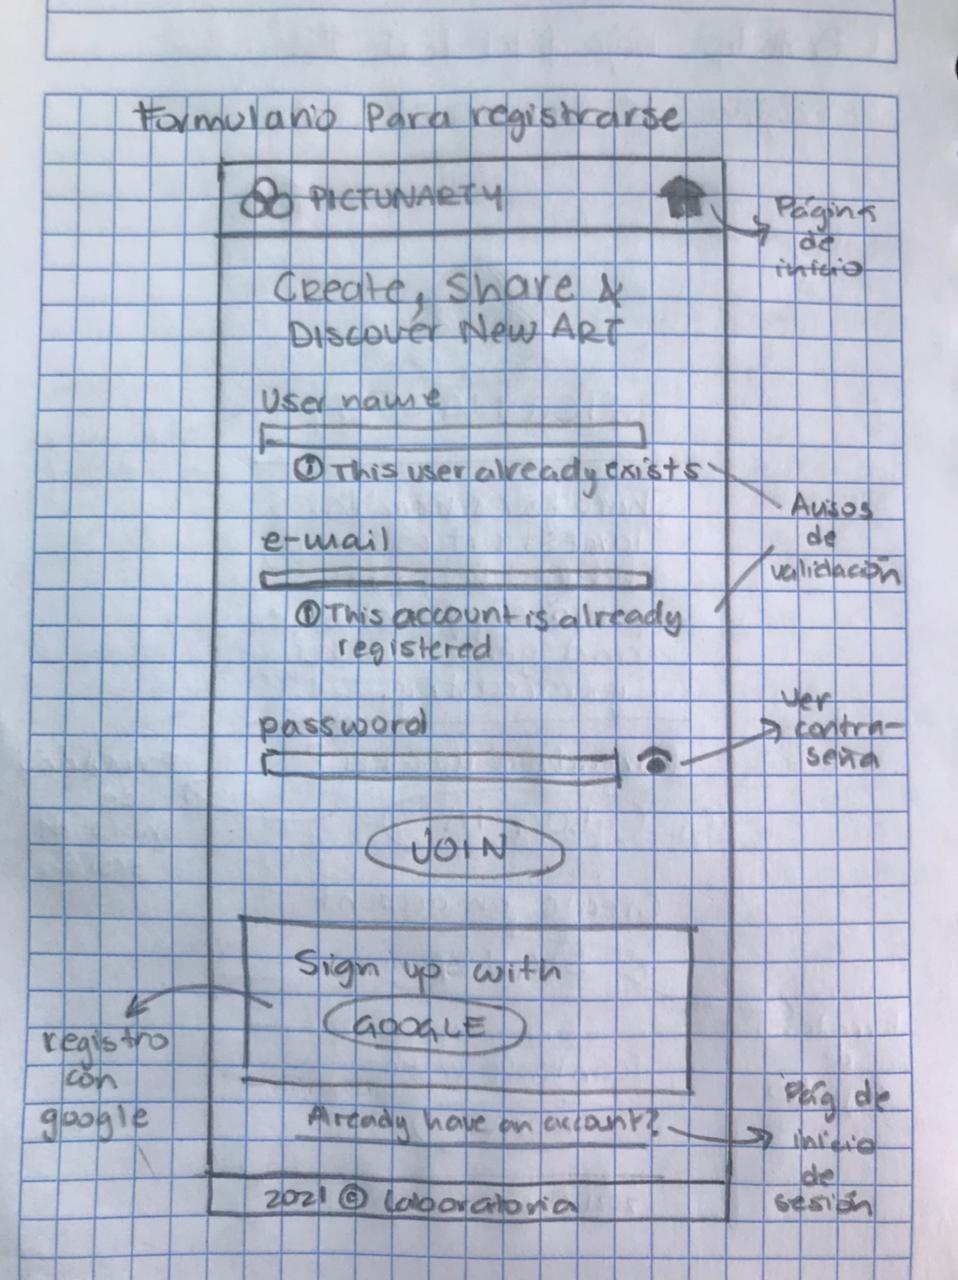 Formulario Para registrarse
PICTUNARTY
Página
de
inicio
Create, Share &
Discover New ART
User name
This user already exists
Avisos
de
validación
e-mail
This account is already
registered
password
Ver
contra-
seña
JOIN
Sign up with
GOOGLE
registro
con
google
Already have an account?
Pág de
inicio
de
sesión
2021 © Laboratoria